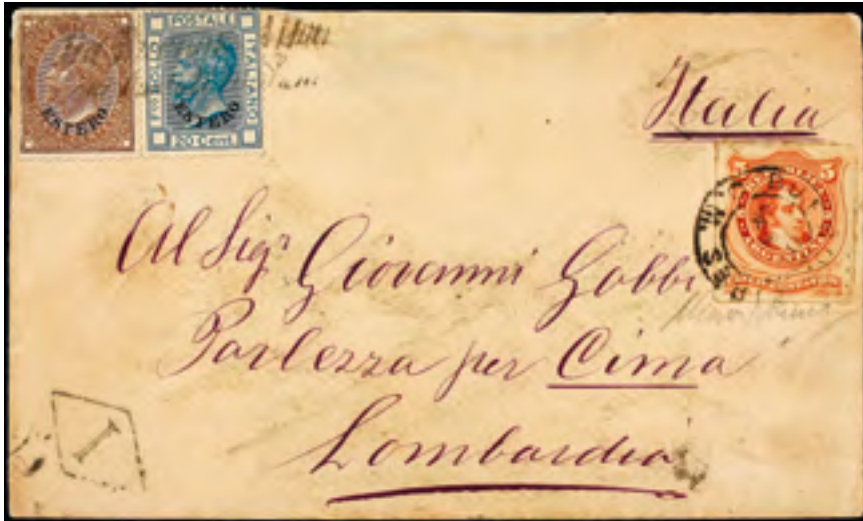 ESTERO
F.co BOLLO POSTALE ITALIANO
ESTERO
20 Cent
Italia
5 5
Al Sigr Giovanni Gobbi
Porlezza per Cima
Lombardia
I